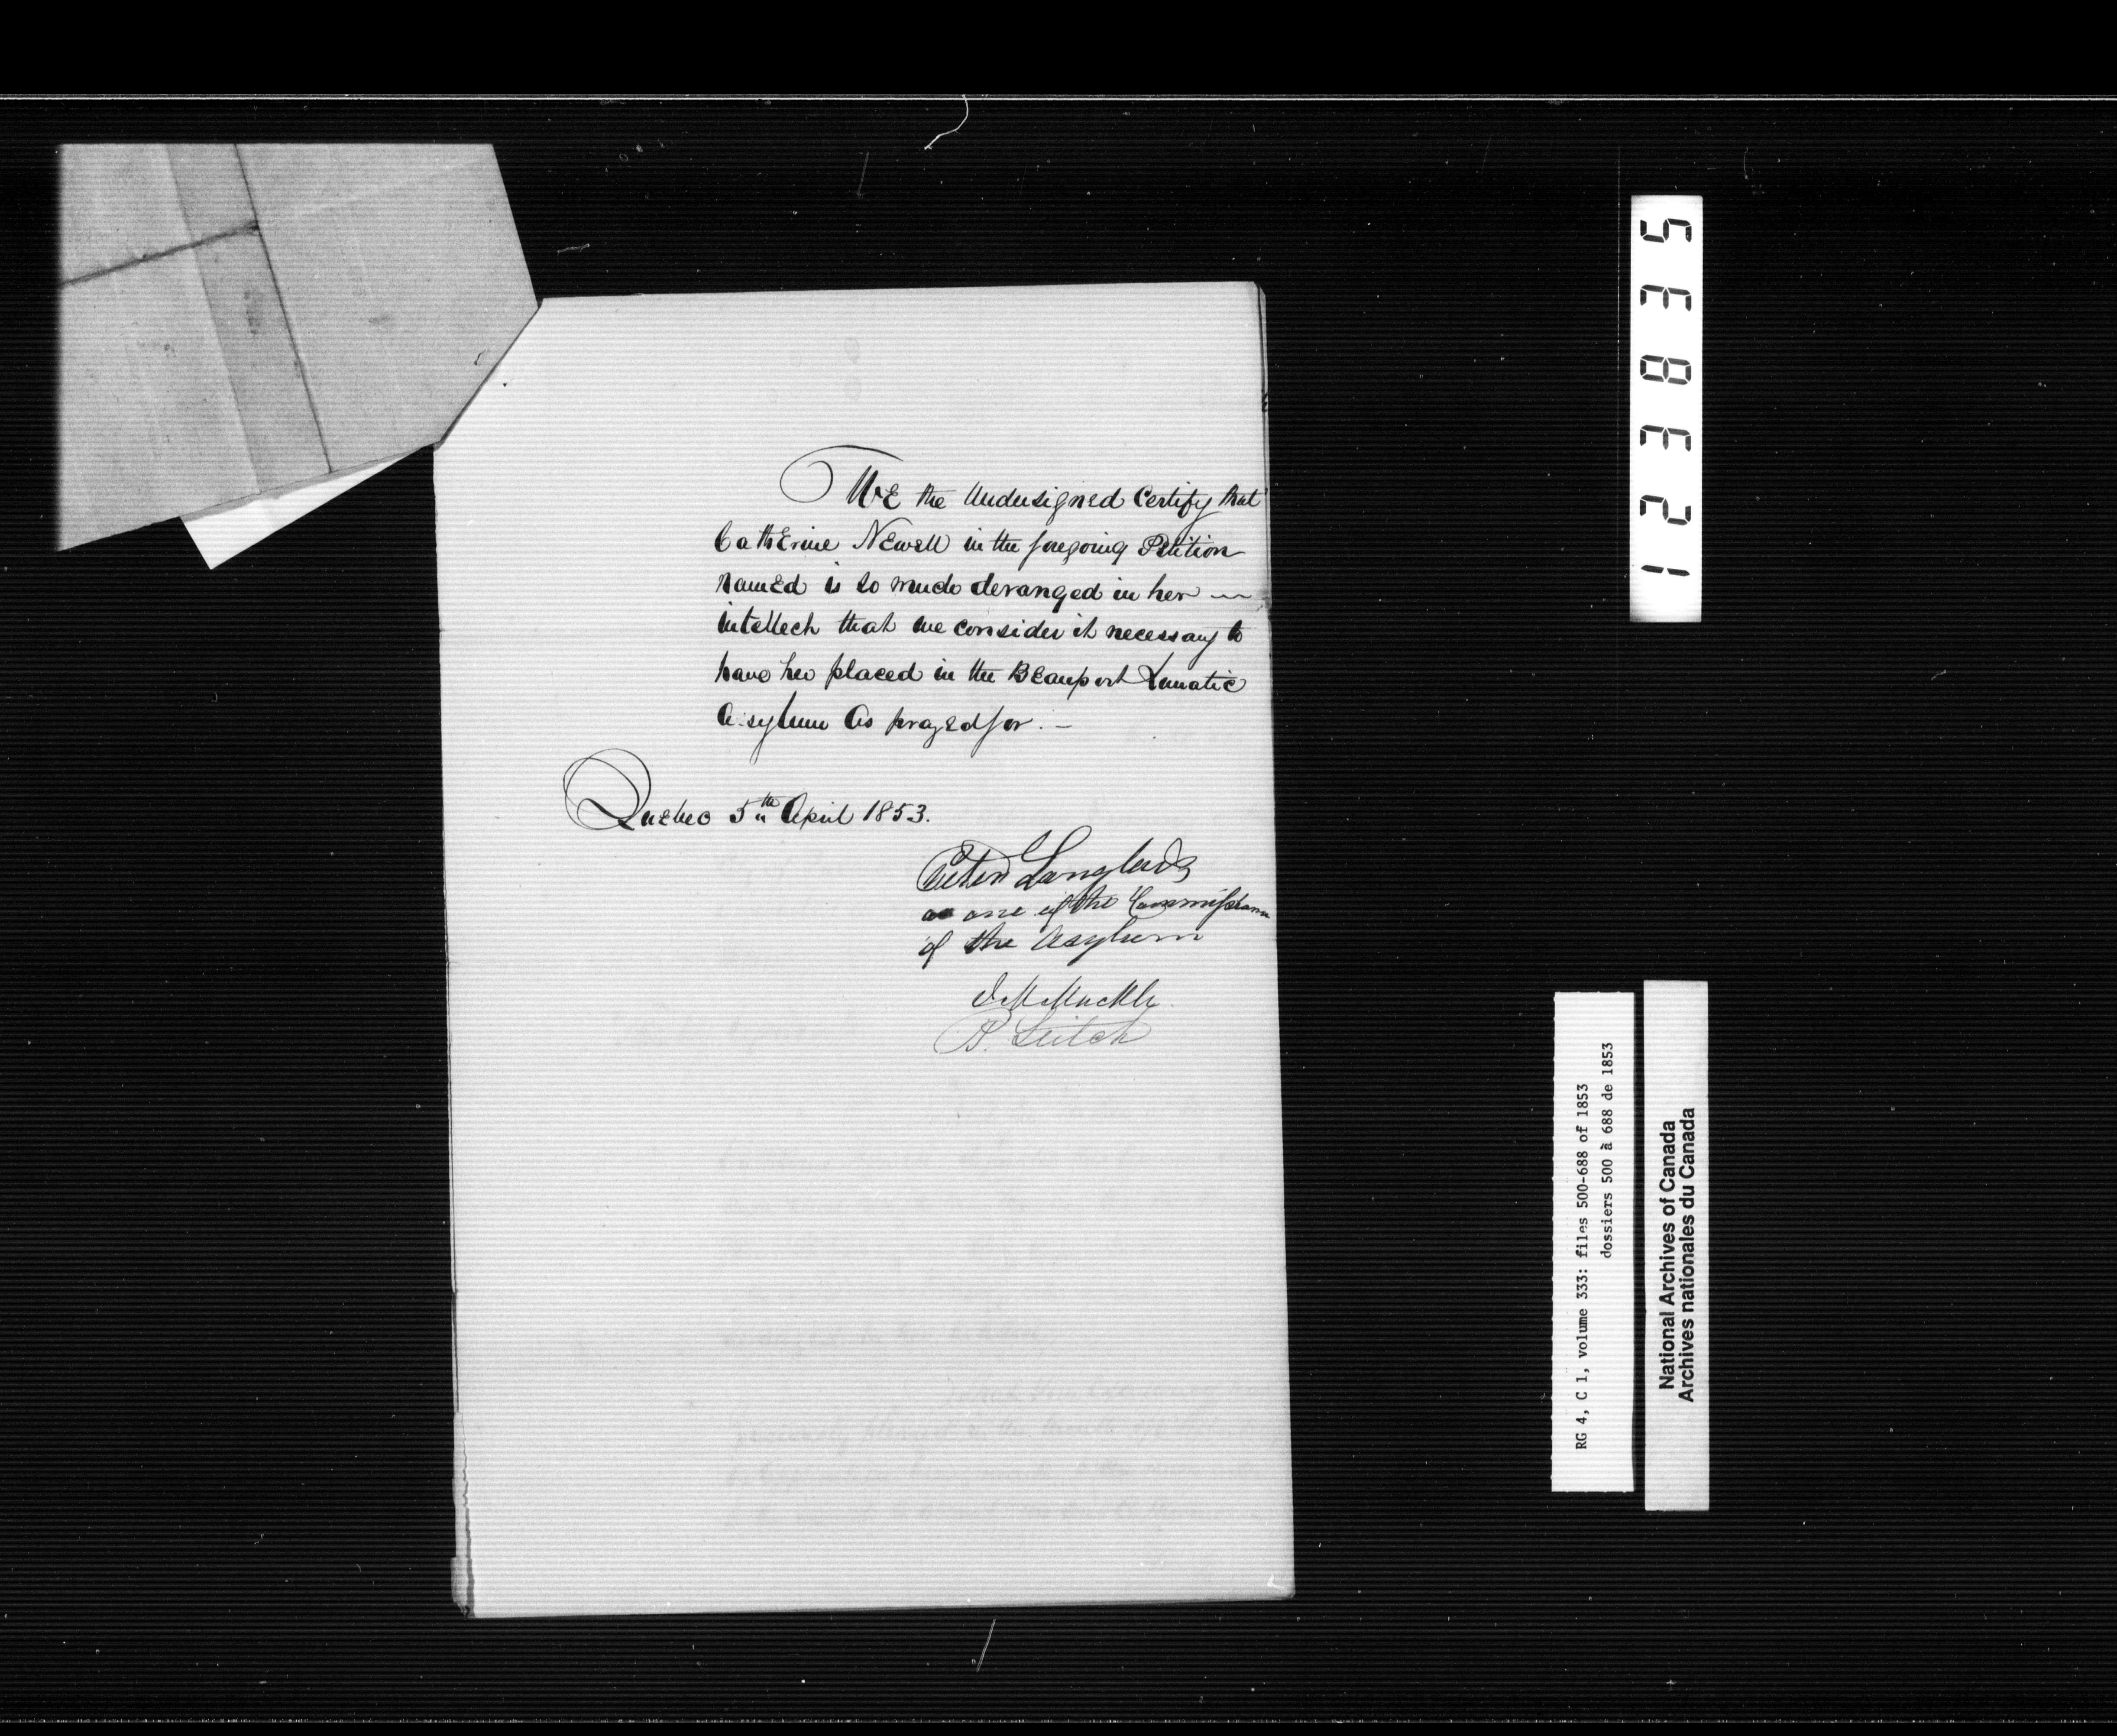 We the Undersigned Certify that
Catherine Newell in the foregoing Petition
named is so much deranged in her
intellect that we consider it necessary to
have her placed in the Beauport Lunatic
Asylum as prayed for. —
Quebec 5th April 1853.
Peter Langlois
as one of the Commissioners
of the Asylum
P. Leitch
12385
RG 4, C 1, volume 333: files 500-688 of 1853
dossiers 500 à 688 de 1853
National Archives of Canada
Archives nationales du Canada